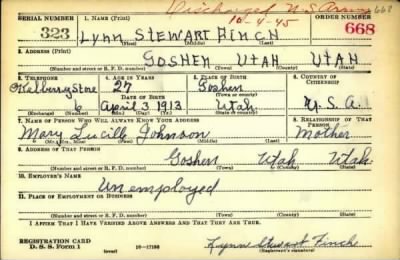 Discharged U.S. Army 668
10-4-45
SERIAL NUMBER 1. NAME (Print) ORDER NUMBER
323 LYNN STEWART FINCH 668
(First) (Middle) (Last)
2. ADDRESS (Print)
GOSHEN UTAH UTAH
(Number and street or R. F. D. number) (Town) (County) (State)
3. TELEPHONE 4. AGE IN YEARS 5. PLACE OF BIRTH 6. COUNTRY OF CITIZENSHIP
27 Goshen
DATE OF BIRTH (Town or county)
6 April 3 1913 Utah U.S.A.
(Exchange) (Number) (Mo.) (Day) (Yr.) (State or country)
7. NAME OF PERSON WHO WILL ALWAYS KNOW YOUR ADDRESS 8. RELATIONSHIP OF THAT PERSON
Mary Lucille Johnson Mother
(Mr., Mrs., Miss) (First) (Middle) (Last)
9. ADDRESS OF THAT PERSON
Goshen Utah Utah
(Number and street or R. F. D. number) (Town) (County) (State)
10. EMPLOYER'S NAME
Unemployed
11. PLACE OF EMPLOYMENT OR BUSINESS
(Number and street or R. F. D. number) (Town) (County) (State)
I AFFIRM THAT I HAVE VERIFIED ABOVE ANSWERS AND THAT THEY ARE TRUE.
REGISTRATION CARD
D. S. S. Form 1 (over) 16-17105 Lynn Stewart Finch
(Registrant's signature)